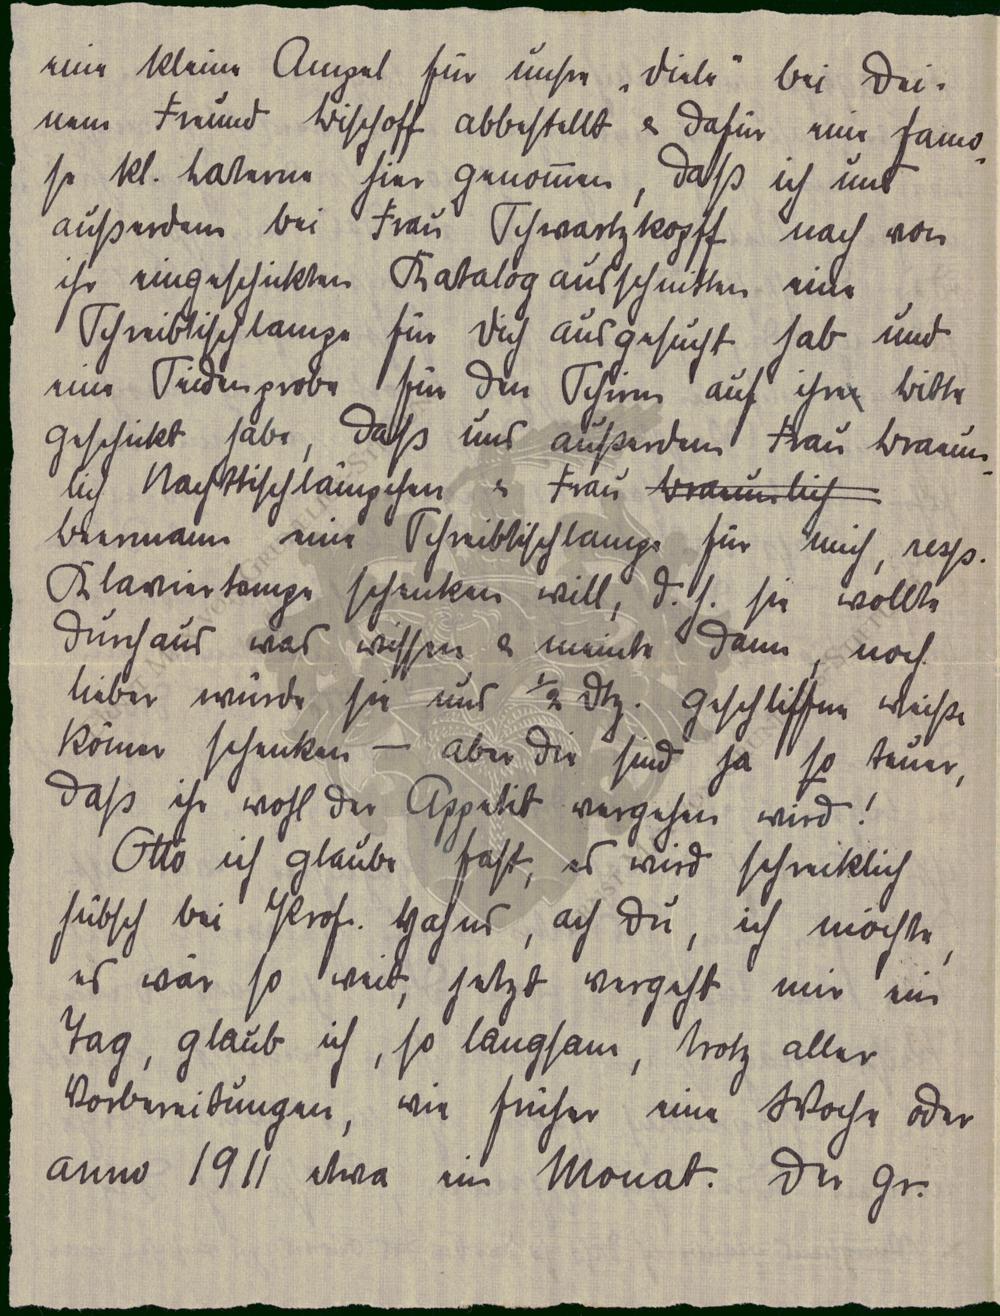 eine kleine Ampel für unsre „Diele“ bei Dei-
nem Freund Bischoff abbestellt & dafür eine famo-
se kl. Laterne hier genom̄en, daß ich uns
außerdem bei Frau Schwartzkopff nach von
ihr eingeschickten Katalogausschnitten eine
Schreibtischlampe für Dich ausgesucht hab und
eine Seidenprobe für den Schirm auf ihre Bitte
geschickt habe, daß uns außerdem Frau Braeun-
lich Nachttischlämpchen & Frau Braeunlich
Beermann eine Schreibtischlampe für mich, resp.
Klavierlampe schenken will, d. h. sie wollte
durchaus was wissen & meinte dann, noch
lieber würde sie uns ½ Dtz. geschliffne weiße
Römer schenken — aber die sind ja so teuer,
daß ihr wohl der Appetit vergehen wird!
Otto ich glaube fast, es wird schrecklich
hübsch bei Prof. Hahns, ach Du, ich möchte,
es wär so weit, jetzt vergeht mir ein
Tag, glaub ich, so langsam, trotz aller
Vorbereitungen, wie früher eine Woche oder
anno 1911 etwa ein Monat. Der gr.